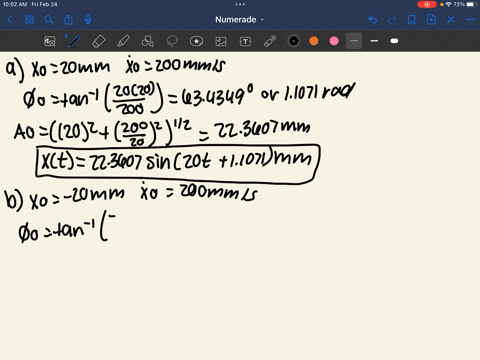 10:02 AM Fri Feb 24
73%
Numerade
a) x0 = 20mm ẋ0 = 200mm/s
Ø0 = tan⁻¹(20(20)/200) = 63.4349° or 1.1071 rad
A0 = ((20)² + (200/20)²)^1/2 = 22.3607mm
x(t) = 22.3607 sin(20t + 1.1071)mm
b) x0 = -20mm ẋ0 = 200mm/s
Ø0 = tan⁻¹(-